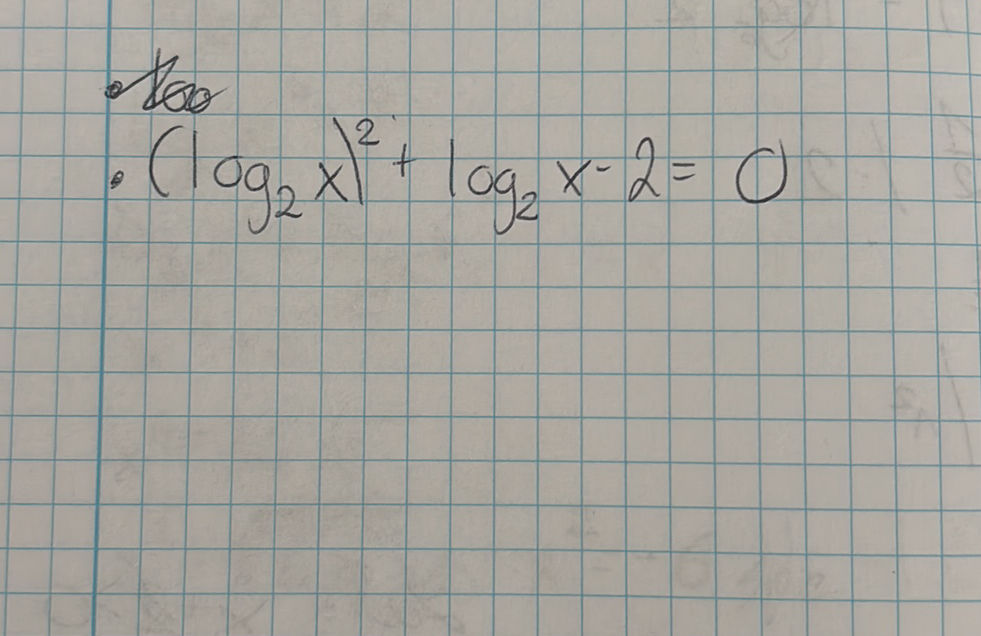 . (log₂ x)² + log₂ x - 2 = 0